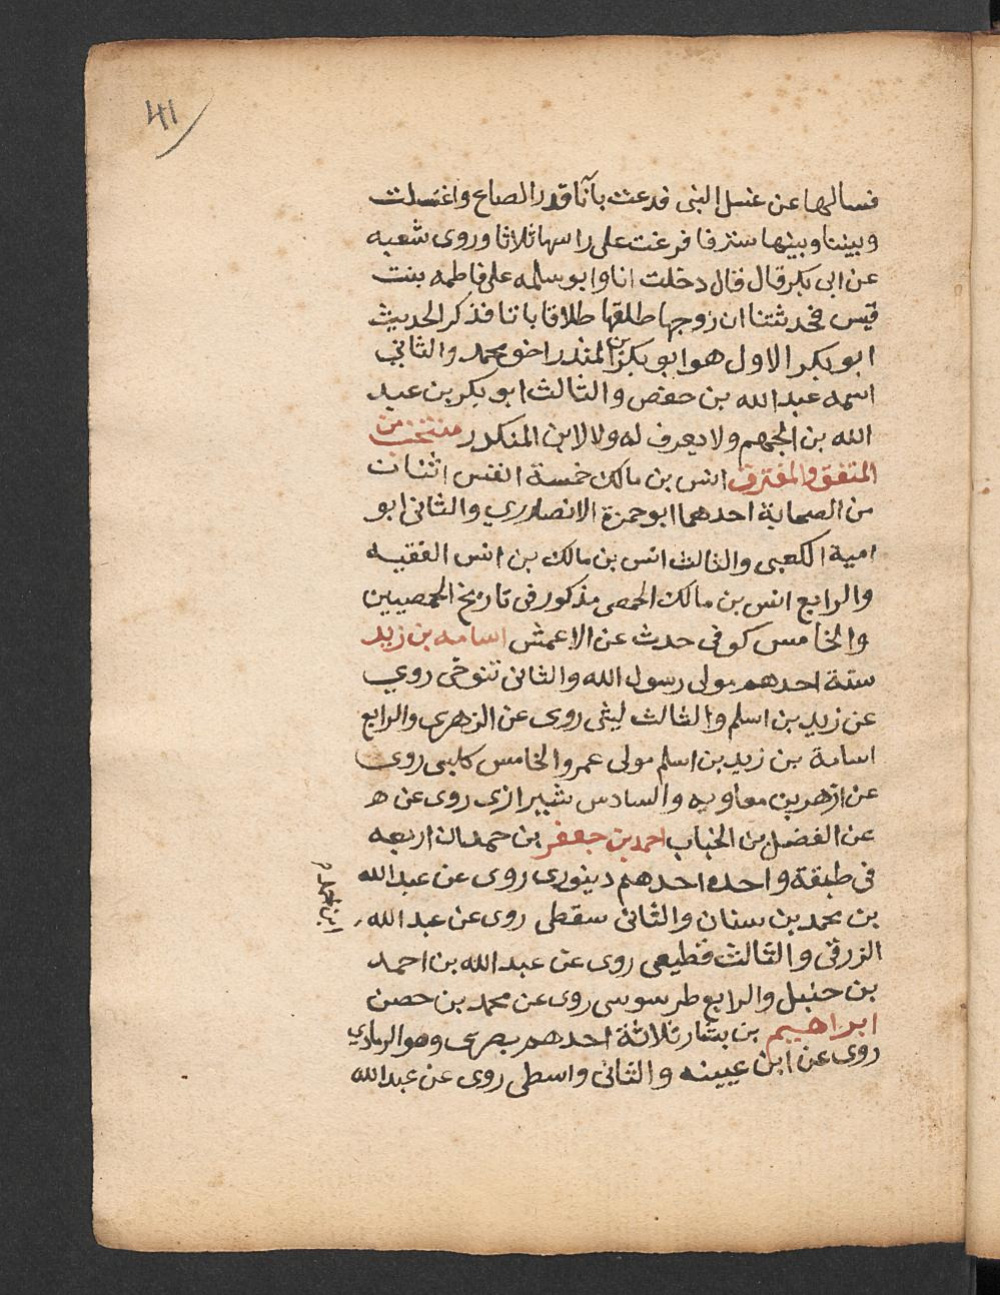 41
فسالها عن غسل النبى فدعت بانآ قدر الصاع واغتسلت
وبيننا وبينها ستر فافرغت على راسها ثلاثا وروى شعبه
عن ابى بكر قال قال دخلت انا وابو سلمه على فاطمه بنت
قيس فحدثتنا ان زوجها طلقها طلاقا باتا فذكر الحديث
ابو بكر الاول هو ابو بكر بن المنذر اخو محمد والثاني
اسمه عبد الله بن حفص والثالث ابو بكر بن عبد
الله بن الجهم ولا يعرف له ولا لابن المنكدر منتخب من
المتفق والمفترق انس بن مالك خمسة انفس اثنان
من الصحابة احدهما ابو حمزة الانصاري والثانى ابو
امية الكعبى والثالث انس بن مالك بن انس الفقيه
والرابع انس بن مالك الحمصى مذكور فى تاريخ الحمصيين
والخامس كوفى حدث عن الاعمش اسامه بن زيد
ستة احدهم مولى رسول الله والثانى تنوخى روي
عن زيد بن اسلم والثالث ليثى روى عن الزهرى والرابع
اسامة بن زيد بن اسلم مولى عمر والخامس كلبى روى
عن ازهر بن معاويه والسادس شيرازى روى عن ه
عن الفضل بن الحباب احمد بن جعفر بن حمدان اربعه
فى طبقة واحده احدهم دينورى روى عن عبد الله
بن محمد بن سنان والثانى سقطى روى عن عبد الله
الزرقى والثالث قطيعى روى عن عبد الله بن احمد
بن حنبل والرابع طرسوسى روى عن محمد بن حصن
ابراهيم بن بشار ثلاثة احدهم بصرى وهو الرمادي
روى عن ابن عيينه والثانى واسطى روى عن عبد الله